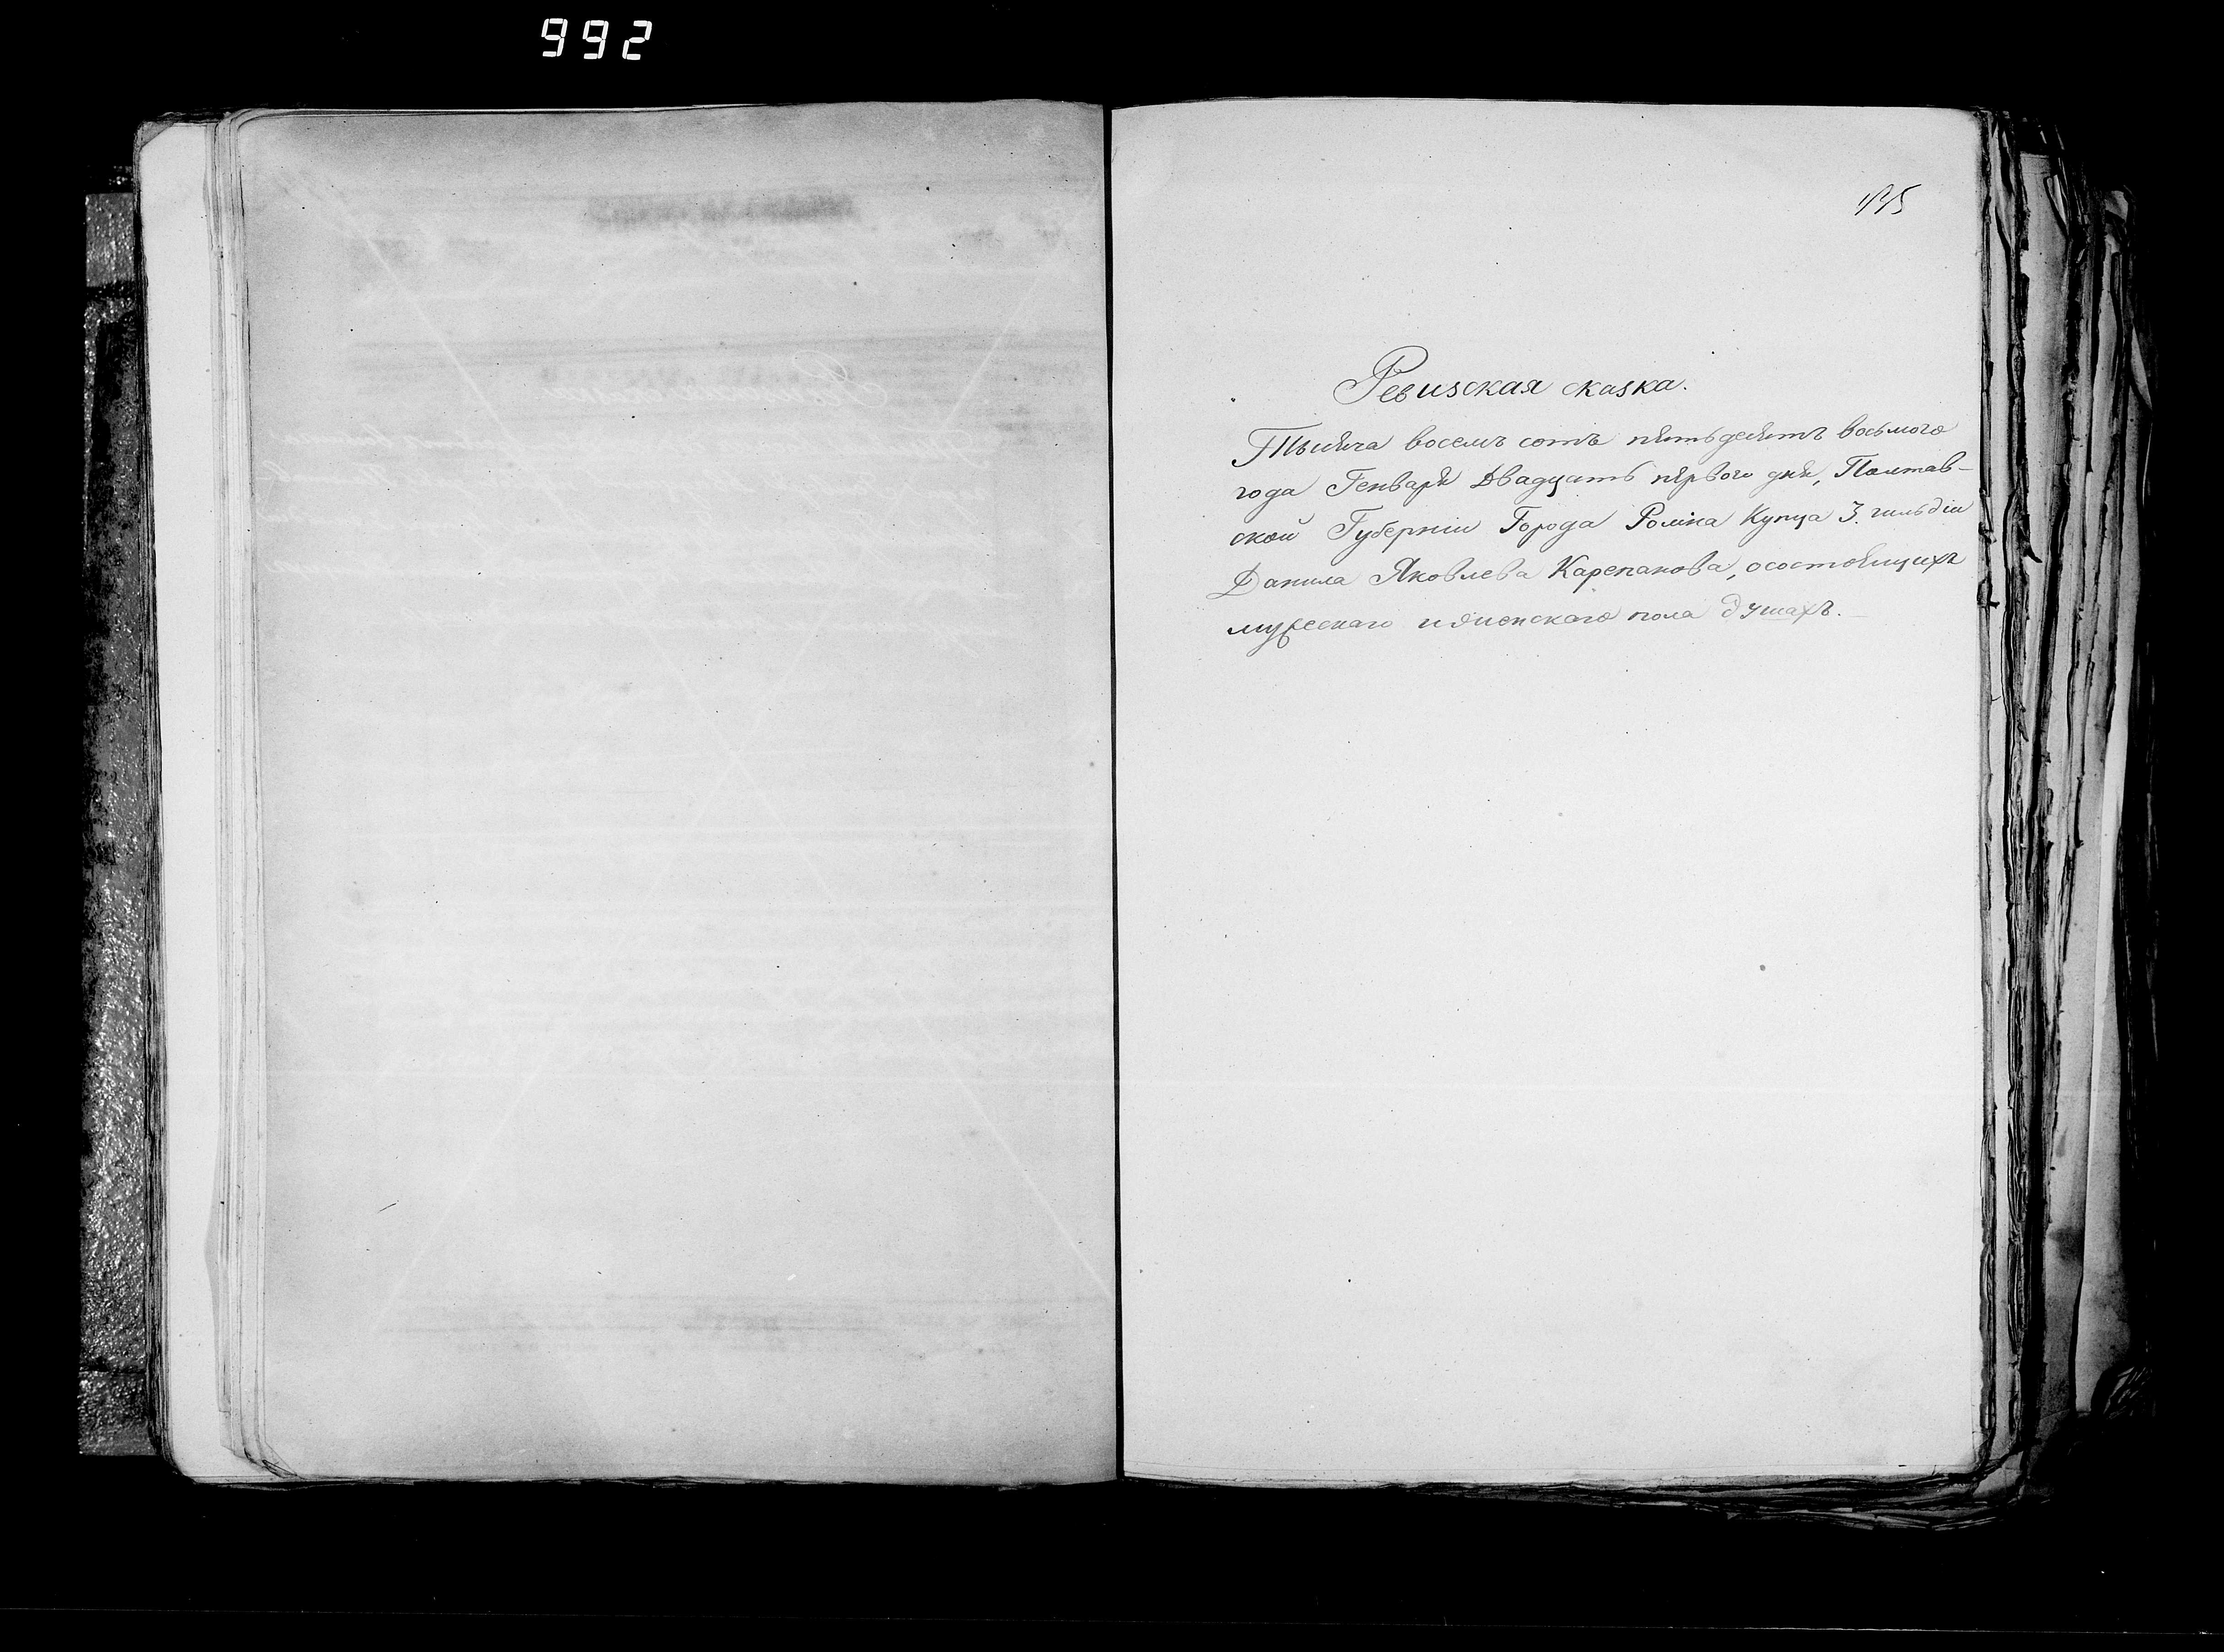 992
Ревизская сказка.
Тысяча восемь сотъ пятьдесятъ восьмого
года Генваря Двадцать перваго дня, Полтав-
ской Губерніи Города Ромна Купца 3. гильдіи
Данила Яковлева Карепанова, о состоящихъ
мужескаго и женскаго пола душахъ.